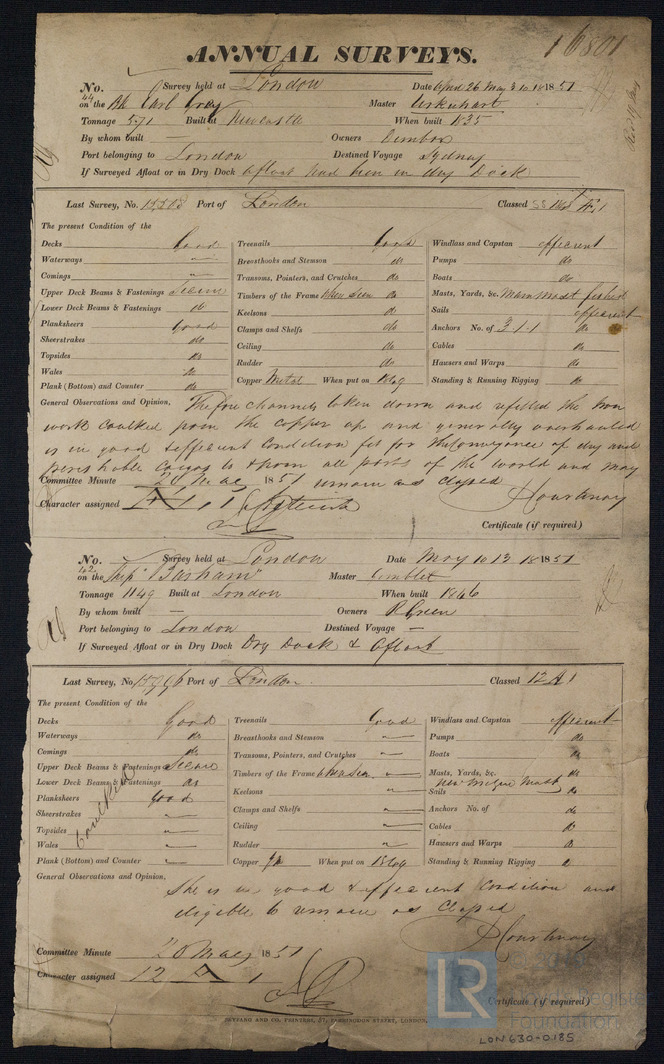 ANNUAL SURVEYS.
16801
No. 44 Survey held at London Date April 26 May 3 10 1851
on the Bk Earl Grey Master Urkenhart
Tonnage 571 Built at Newcastle When built 1835
By whom built Owners Dunbar
Port belonging to London Destined Voyage Sydney
If Surveyed Afloat or in Dry Dock afloat had been in dry Dock
Last Survey, No. Port of London Classed
The present Condition of the
Decks Good Treenails Good Windlass and Capstan efficient
Waterways Breasthooks and Stemson do Pumps do
Comings Transoms, Pointers, and Crutches do Boats do
Upper Deck Beams & Fastenings Secure Timbers of the Frame when seen do Masts, Yards, &c. Main mast fished
Lower Deck Beams & Fastenings do Keelsons do Sails efficient
Planksheers Good Clamps and Shelfs do Anchors No. of 3 1 . 1 do
Sheerstrakes do Ceiling do Cables do
Topsides do Rudder do Hausers and Warps do
Wales do Copper Metal When put on Standing & Running Rigging do
Plank (Bottom) and Counter do
General Observations and Opinion, The fore channels taken down and refitted the Iron
work caulked from the copper up and generally overhauled
is in good & efficient Condition fit for the Conveyance of dry and
perishable Cargos to & from all parts of the world and may
Committee Minute 20 May 1851 remain as classed
Character assigned
Certificate (if required)
No. 42 Survey held at London Date May 10 13 1851
on the Ship "Barham" Master Gimblet
Tonnage 1149 Built at London When built 1846
By whom built — Owners R Green
Port belonging to London Destined Voyage —
If Surveyed Afloat or in Dry Dock Dry Dock & Afloat
Last Survey, No. Port of London Classed 12 A 1
The present Condition of the
Decks Good Treenails Good Windlass and Capstan efficient
Waterways do Breasthooks and Stemson Pumps do
Comings do Transoms, Pointers, and Crutches Boats do
Upper Deck Beams & Fastenings Secure Timbers of the Frame when seen Masts, Yards, &c. do
Lower Deck Beams & Fastenings do Keelsons Sails do
Planksheers Good Clamps and Shelfs Anchors No. of do
Sheerstrakes Ceiling Cables do
Topsides Caulked Rudder Hausers and Warps do
Wales Copper When put on Standing & Running Rigging do
Plank (Bottom) and Counter
General Observations and Opinion,
She is in good & efficient Condition and
eligible to remain as Classed
Committee Minute 20 May 1851
Character assigned 12 A 1
Certificate (if required)
LR
Foundation
LON630-0185